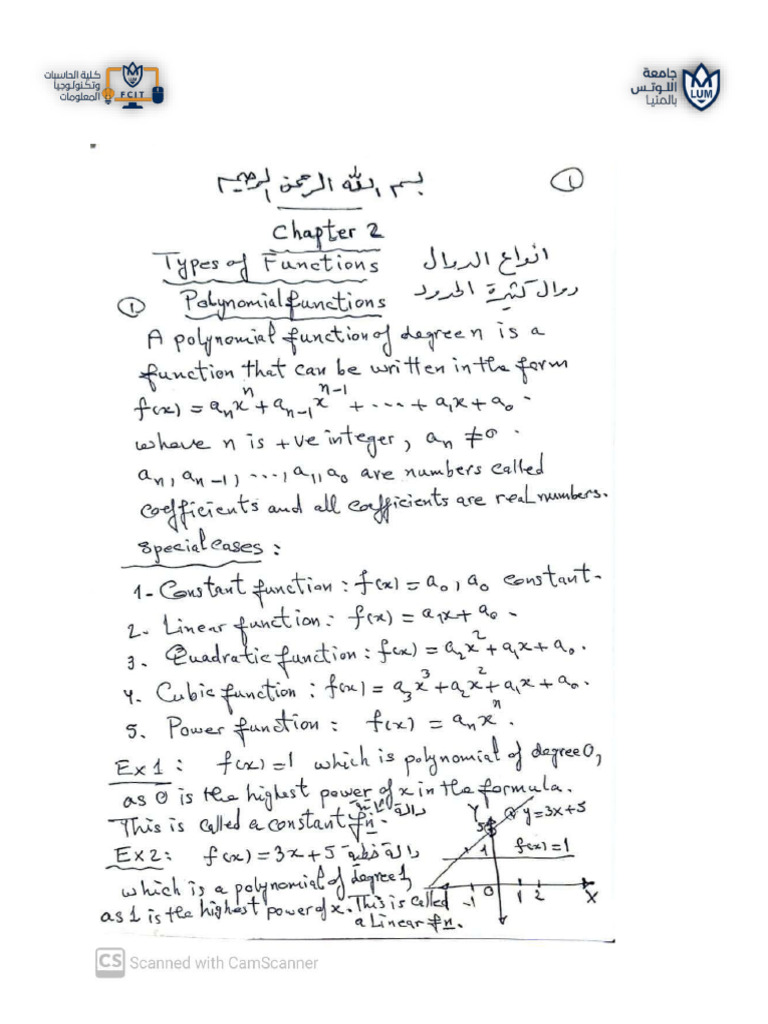 كلية الحاسبات
وتكنولوجيا
المعلومات
LUM
FCIT
جامعة
اللوتس
بالمنيا
LUM
بسم الله الرحمن الرحيم
1
Chapter 2
Types of Functions انواع الدوال
① Polynomial functions دوال كثيرة الحدود
A polynomial function of degree n is a
function that can be written in the form
f(x) = aₙxⁿ + aₙ₋₁xⁿ⁻¹ + ... + a₁x + a₀.
where n is +ve integer, aₙ ≠ 0.
aₙ, aₙ₋₁, ..., a₁, a₀ are numbers called
coefficients and all coefficients are real numbers.
Special cases :
1- Constant function : f(x) = a₀, a₀ constant.
2. Linear function : f(x) = a₁x + a₀.
3. Quadratic function : f(x) = a₂x² + a₁x + a₀.
4. Cubic function : f(x) = a₃x³ + a₂x² + a₁x + a₀.
5. Power function : f(x) = aₙxⁿ.
Ex 1 : f(x) = 1 which is polynomial of degree 0,
as 0 is the highest power of x in the formula.
This is called a constant fn. دالة ثابتة
Ex 2 : f(x) = 3x + 5 دالة خطية
which is a polynomial of degree 1,
as 1 is the highest power of x. This is called
a Linear fn.
Y
5
y = 3x + 5
1
f(x) = 1
-1 0 1 2 X
CS Scanned with CamScanner